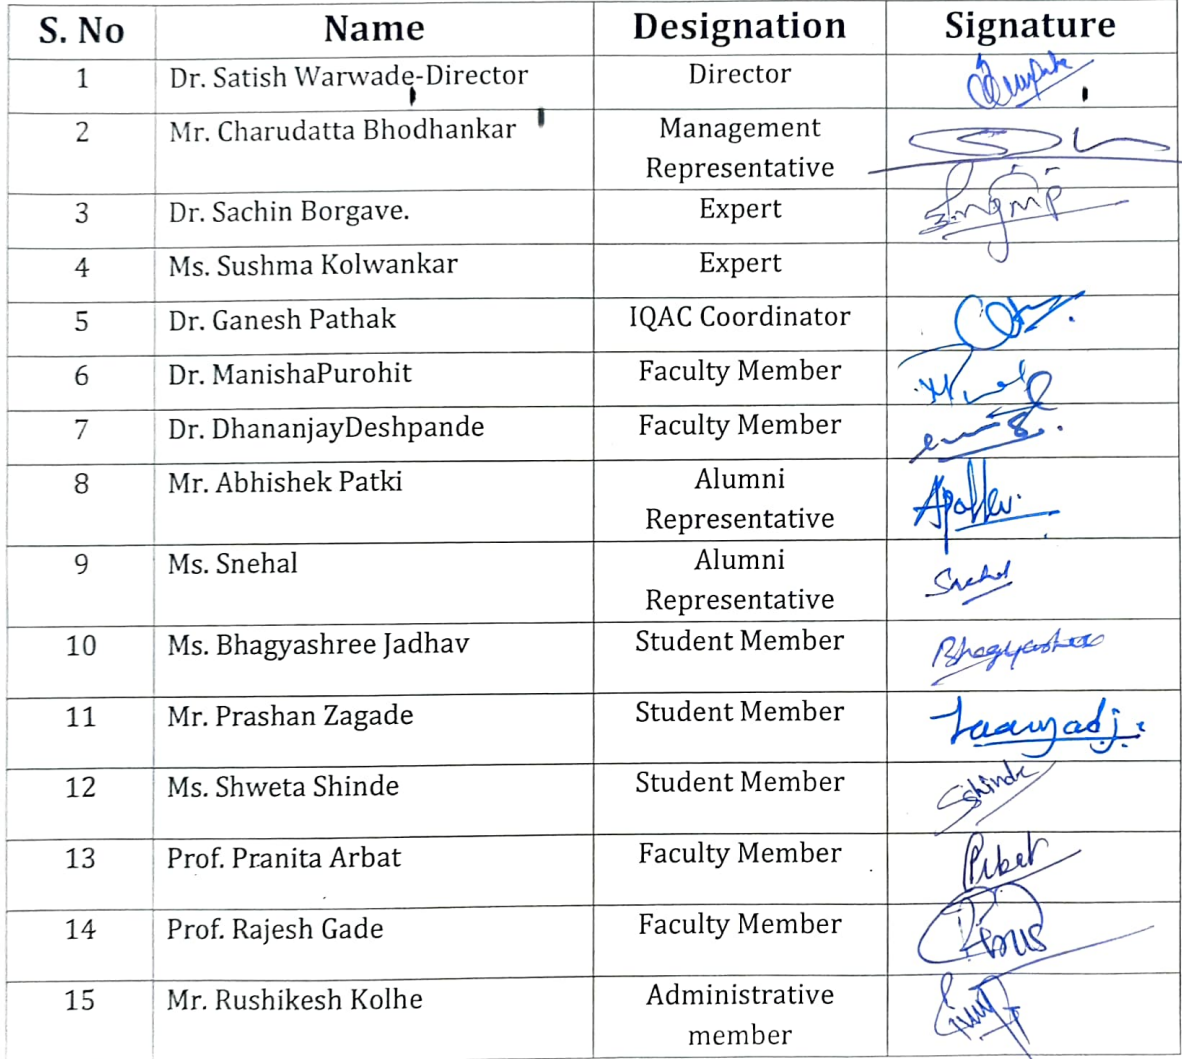 S. No Name Designation Signature
1 Dr. Satish Warwade-Director Director
2 Mr. Charudatta Bhodhankar Management
Representative
3 Dr. Sachin Borgave. Expert
4 Ms. Sushma Kolwankar Expert
5 Dr. Ganesh Pathak IQAC Coordinator
6 Dr. ManishaPurohit Faculty Member
7 Dr. DhananjayDeshpande Faculty Member
8 Mr. Abhishek Patki Alumni
Representative
9 Ms. Snehal Alumni
Representative
Snehal
10 Ms. Bhagyashree Jadhav Student Member Bhagyashree
11 Mr. Prashan Zagade Student Member
12 Ms. Shweta Shinde Student Member SShinde
13 Prof. Pranita Arbat Faculty Member
14 Prof. Rajesh Gade Faculty Member
15 Mr. Rushikesh Kolhe Administrative
member